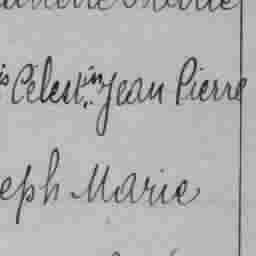 is Célestin Jean Pierre
eph Marie